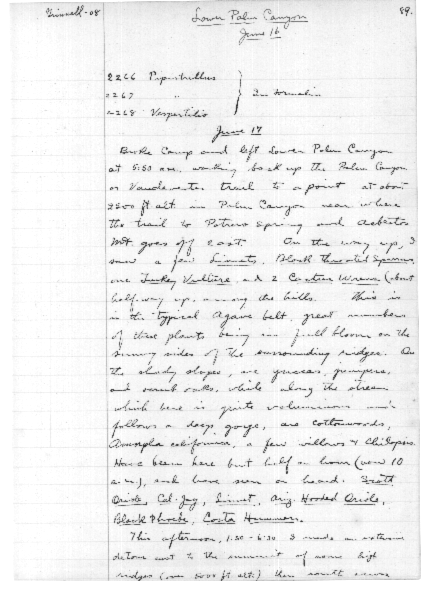 Grinnell-08
Lower Palm Canyon
89.
June 16
2266 Pipistrellus
2267 "
2268 Vespertilio
In formalin
June 17
Broke Camp and left Lower Palm Canyon
at 5:30 a.m. working back up the Palm Canyon
or Vandeventer trail to a point at about
2500 ft alt. in Palm Canyon near where
the trail to Potrero Spring and Asbestos
Mt. goes off east. On the way up, I
saw a few Linnets, Black throated Sparrows,
one Turkey Vulture and 2 Cactus Wrens (about
half-way up, among the hills. This is
in the typical Agave belt, great numbers
of these plants being in full bloom on the
sunny sides of the surrounding ridges. On
the shady slopes, are grasses, junipers,
and scrub oaks, while along the stream
which here is quite voluminous and
follows a deep gorge, are cottonwoods,
californica, a few willows & Chilopsis.
Have been here but half an hour (now 10
a.m.), and have seen or heard: Scott
Oriole, Cal. Jay, Linnet, Ariz. Hooded Oriole,
Black Phoebe, Costa Hummer.
This afternoon, 1:30 - 6:30 I made an extensive
detour east to the summit of some high
ridges (over 5000 ft alt.) then south across